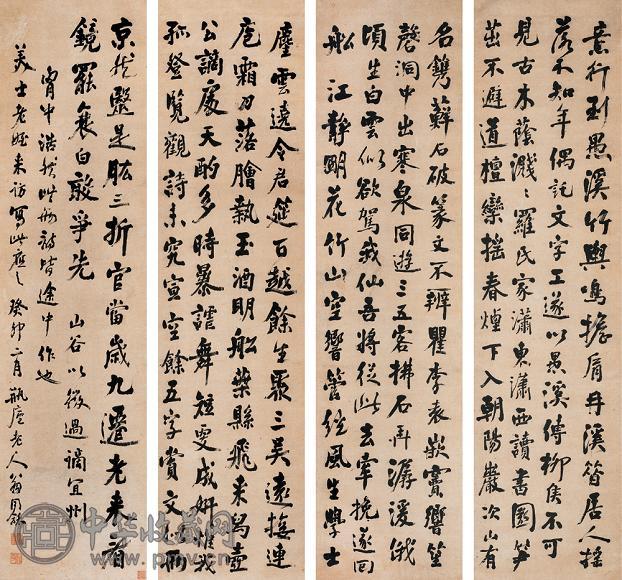 意行到愚溪竹輿鳴擔肩冉溪昔居人搖
落不知年偶託文字工遂以愚溪傳柳侯不可
見古木蔭濺〻羅氏家瀟東瀟西讀書園笋
茁不避道檀欒搖春煙下入朝陽巖次山有
名鐫蘚石破篆文不辨瞿李袁嵌竇響笙
磬洞中出寒泉同遊三五客拂石弄潺湲俄
頃生白雲似欲駕我仙吾將從此去牽挽遂回
船 江靜明花竹山空響管弦風生學士
麈雲遶令君筵百越餘生聚三吳遠接連
庖霜刀落膾執玉酒明船葉縣飛來舄壺
公謫處天酌多時暴謔舞短更成妍惟我
孤燈覽觀詩未究宣空餘五字賞文似兩
京然醫是肱三折官當歲九遷老來看
鏡罷衰白敢爭先 山谷以微過謫宜州
胷中浩然此兩詩皆途中作也
美士老姪來訪寫此應之 癸卯二月瓶廬老人翁同龢
中华收藏网